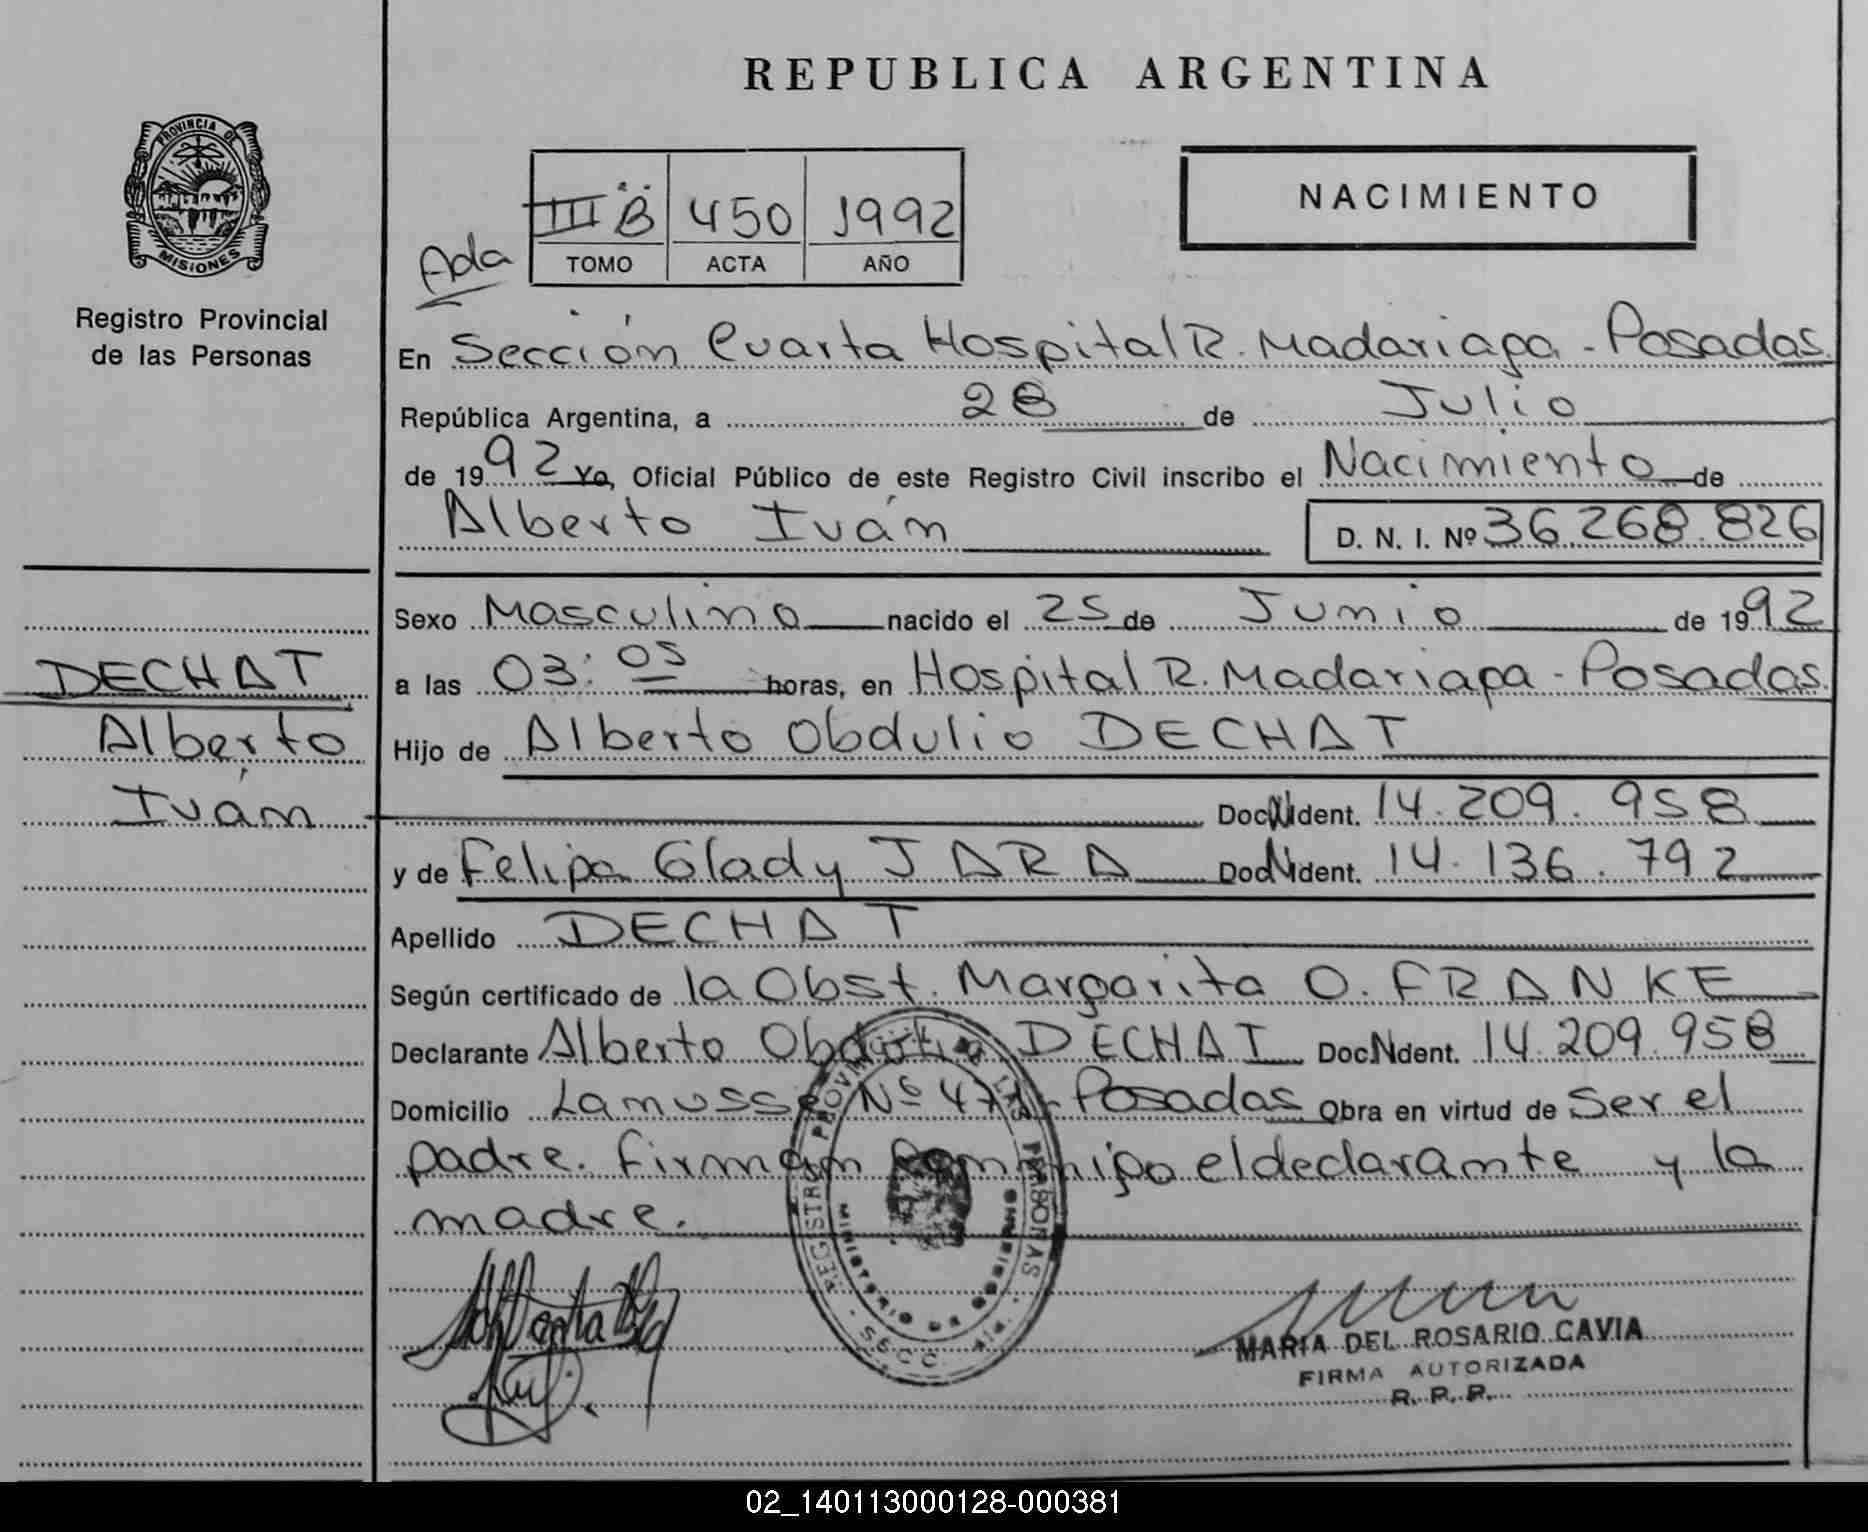 REPUBLICA ARGENTINA
PROVINCIA DE
MISIONES
Registro Provincial
de las Personas
NACIMIENTO
III B 450 1992
TOMO ACTA AÑO
Ada
En Sección Cuarta Hospital R. Madariaga - Posadas.
República Argentina, a 28 de Julio
de 1992 Yo, Oficial Público de este Registro Civil inscribo el Nacimiento de
Alberto Iván D. N. I. Nº 36.268.826
Sexo Masculino nacido el 25 de Junio de 1992
a las 03:05 horas, en Hospital R. Madariaga - Posadas.
Hijo de Alberto Obdulio DECHAT
Doc. N Ident. 14.209.958
y de Felipa Glady JARA Doc. N Ident. 14.136.792
Apellido DECHAT
Según certificado de la Obst. Margarita O. FRANKE
Declarante Alberto Obdulio DECHAT Doc. N Ident. 14.209.958
Domicilio Lamusse Nº 47 - Posadas Obra en virtud de Ser el
padre. Firman conmigo el declarante y la
madre.
DECHAT
Alberto
Iván
REGISTRO PROVINCIAL DE LAS PERSONAS
MINISTERIO DE GOBIERNO
SECC. 4ta.
MARIA DEL ROSARIO CAVIA
FIRMA AUTORIZADA
R. P. P.
02_140113000128-000381